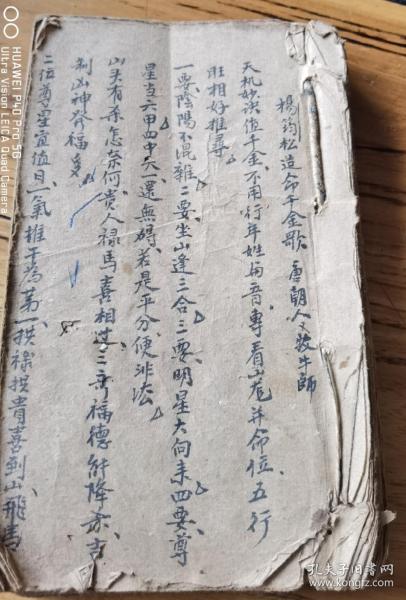 楊筠松造命千金歌 唐朝人又救牛師
天机妙决值千金、不用行年姓與音專看山龙并命位、五行
胜相好推尋
一要陰陽不混雜二要坐山逢三合三要明星入向来四要尊
星当六甲四中失一還無碍若是平分便非法
山头有杀怎奈何、贵人禄馬喜相逢三奇福德能降杀吉
制凶神發福多
二位尊星宜值日、一氣堆干為第一拱禄拱貴喜到山飛馬
HUAWEI P40 Pro 5G
Ultra Vision LEICA Quad Camera
孔夫子旧书网